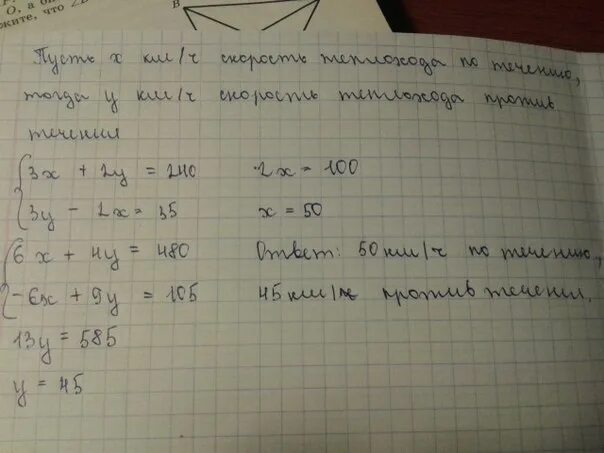 О, а
жите, что
B
Пусть x км/ч скорость теплохода по течению,
тогда y км/ч скорость теплохода против
течения
3x + 2y = 240
3y - 2x = 35
6x + 4y = 480
-6x + 9y = 105
13y = 585
y = 45
2x = 100
x = 50
Ответ: 50 км/ч по течению,
45 км/ч против течения.